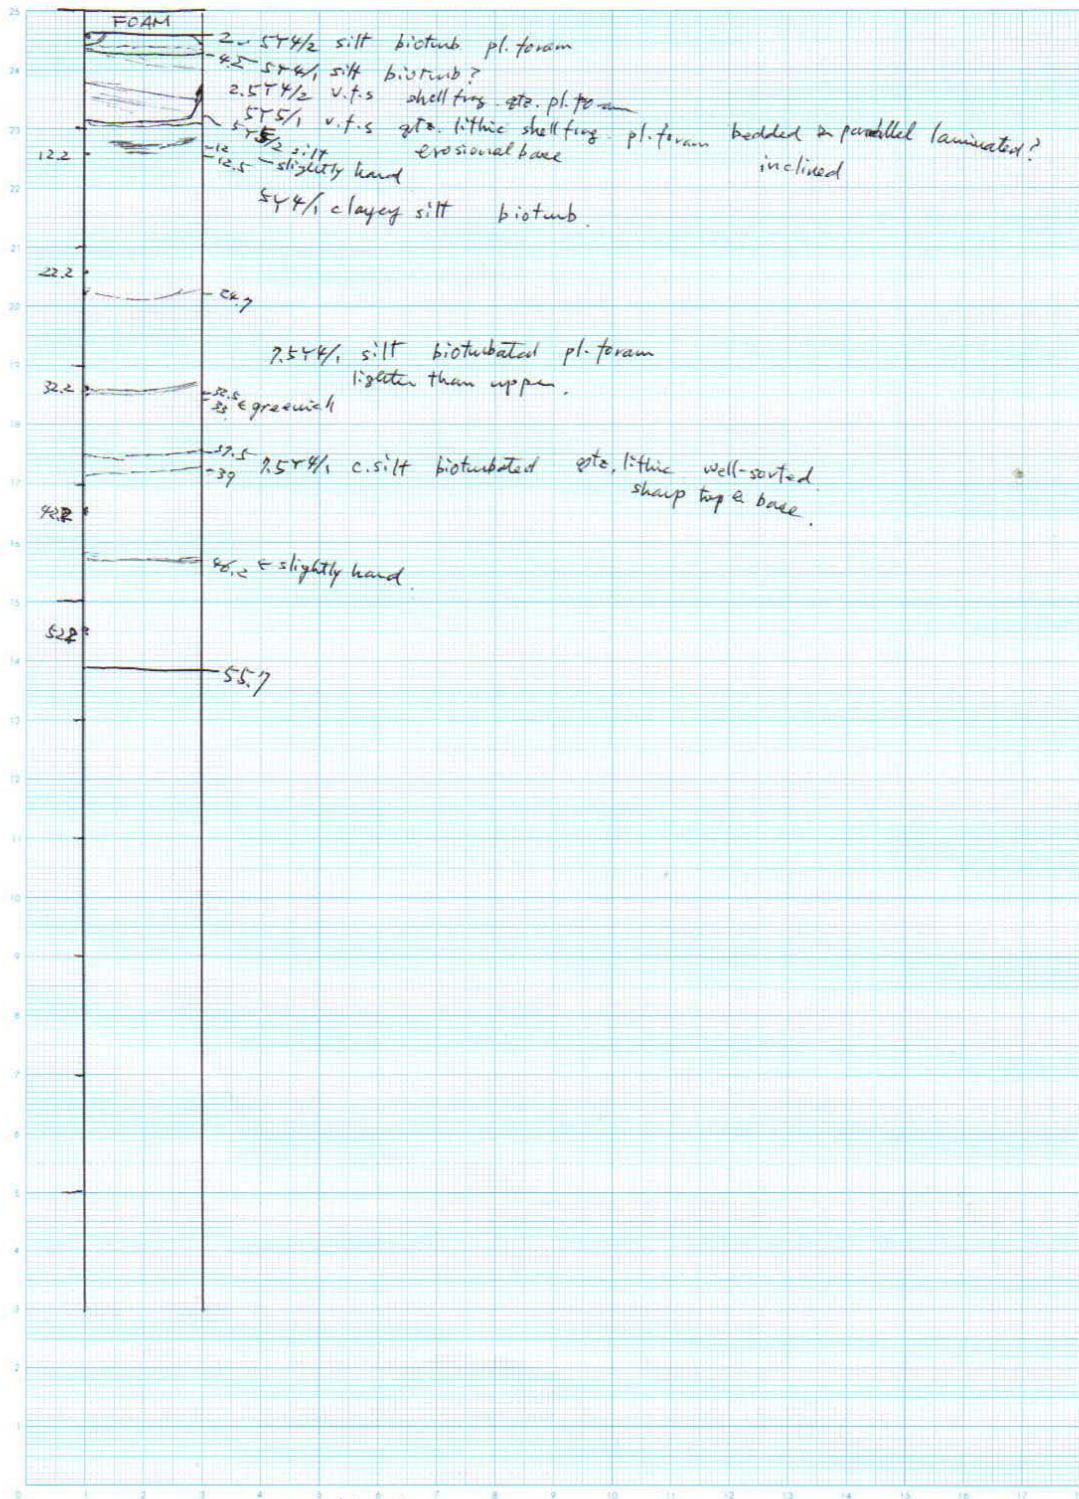 FOAM
2 5Y4/2 silt bioturb. pl. foram
4.5 5Y4/1 silt bioturb?
2.5Y4/2 v.f.s shell frag. qtz. pl. foram
5Y5/1 v.f.s qtz. lithic shell frag. pl. foram bedded in parallel laminated?
5Y5/2 silt erosional base inclined
12
12.5 slightly hard
12.2
5Y4/1 clayey silt bioturb.
22.2
24.7
7.5Y4/1 silt bioturbated pl. foram
lighter than upper.
32.2
32.5
33 ← greenish
37.5
7.5Y4/1 c. silt bioturbated qtz, lithic well-sorted.
39
sharp top & base.
42.2
46.2 ← slightly hard.
52.2
55.7
25
24
23
22
21
20
19
18
17
16
15
14
13
12
11
10
9
8
7
6
5
4
3
2
1
0 1 2 3 4 5 6 7 8 9 10 11 12 13 14 15 16 17